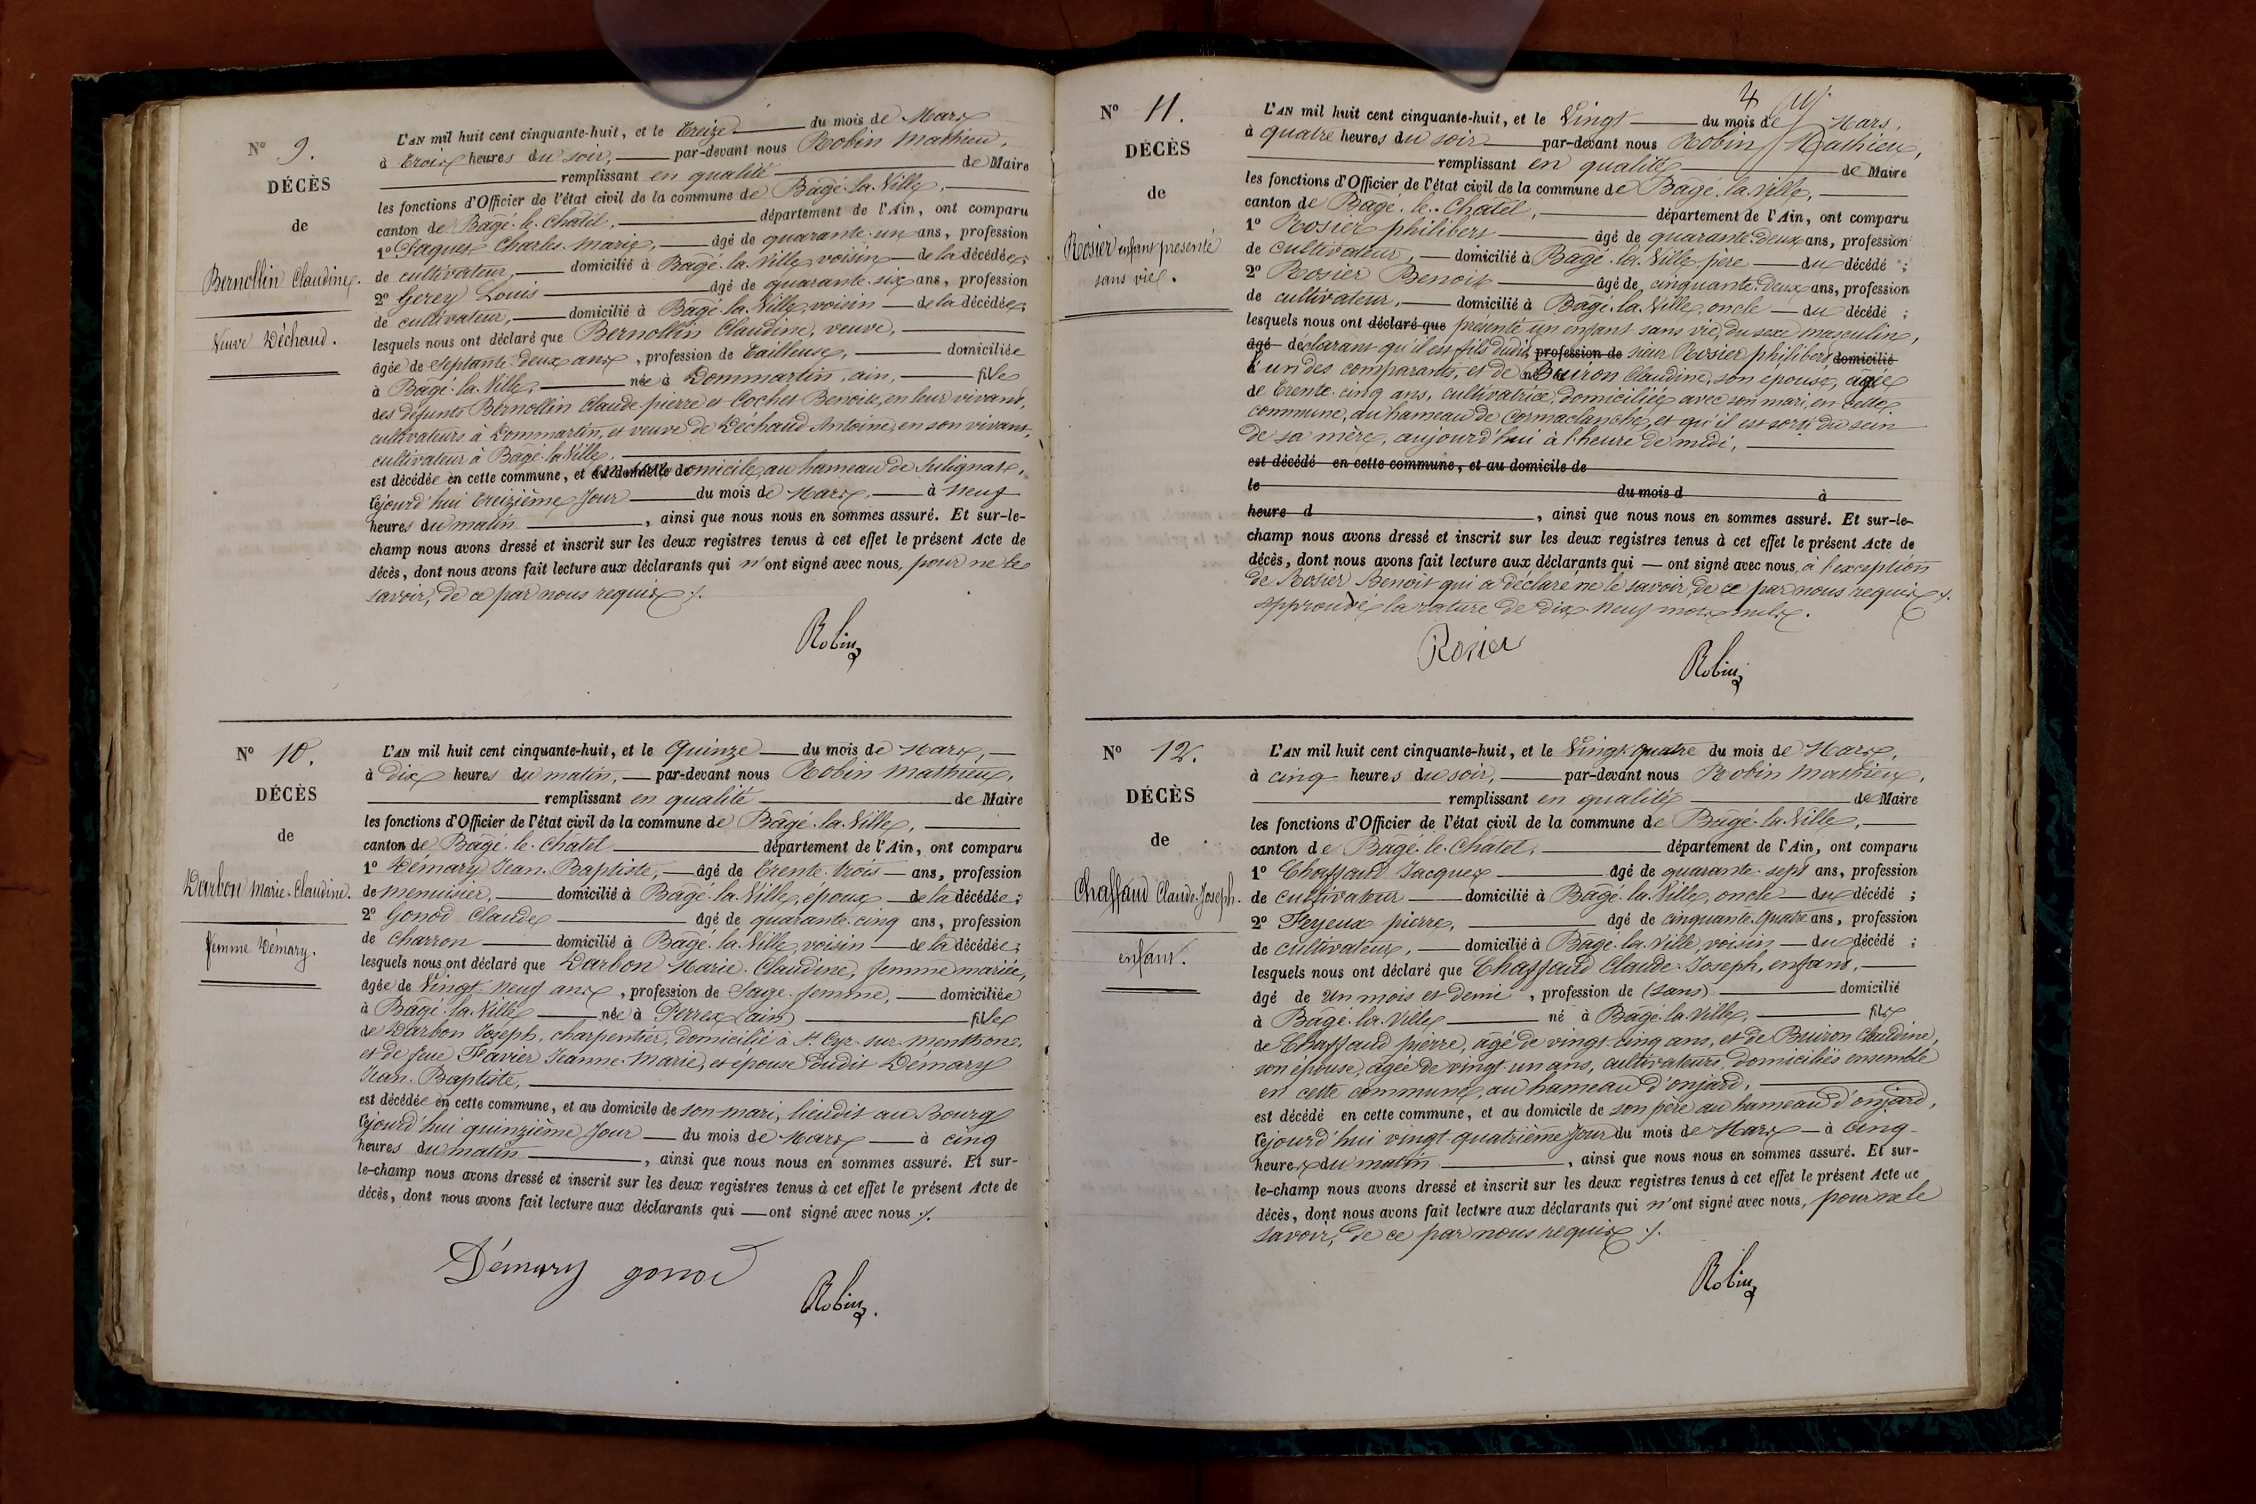 N° 9.
DÉCÈS
de
Bernollin Claudine.
Veuve Déchaud.
L'AN mil huit cent cinquante-huit, et le treize du mois de Mars
à trois heures du soir, par-devant nous Robin Mathieu,
remplissant en qualité de Maire
les fonctions d'Officier de l'état civil de la commune de Bâgé-la-Ville,
canton de Bâgé-le-Châtel, département de l'Ain, ont comparu
1° Jaques Charles Marie, âgé de quarante-un ans, profession
de cultivateur, domicilié à Bâgé-la-Ville, voisin de la décédée;
2° Gerey Louis âgé de quarante-six ans, profession
de cultivateur, domicilié à Bâgé-la-Ville, voisin de la décédée;
lesquels nous ont déclaré que Bernollin Claudine, veuve,
âgée de septante-deux ans, profession de tailleuse, domiciliée
à Bâgé-la-Ville, née à Dommartin, ain, fille
des défunts Bernollin Claude-pierre et Cochet Benoite, en leur vivant,
cultivateurs à Dommartin, et veuve de Déchaud Antoine, en son vivant,
cultivateur à Bâgé-la-Ville.
est décédée en cette commune, et en son domicile, au hameau de Sulignat,
cejourd'hui treizième jour du mois de Mars, à neuf
heures du matin, ainsi que nous nous en sommes assuré. Et sur-le-
champ nous avons dressé et inscrit sur les deux registres tenus à cet effet le présent Acte de
décès, dont nous avons fait lecture aux déclarants qui n'ont signé avec nous, pour ne le
savoir, de ce par nous requis ./.
Robin
N° 10.
DÉCÈS
de
Darbon Marie-Claudine.
femme Démary.
L'AN mil huit cent cinquante-huit, et le Quinze du mois de Mars,
à dix heures du matin, par-devant nous Robin Mathieu,
remplissant en qualité de Maire
les fonctions d'Officier de l'état civil de la commune de Bâgé-la-Ville,
canton de Bâgé-le-Châtel département de l'Ain, ont comparu
1° Démary Jean-Baptiste, âgé de trente-trois ans, profession
de menuisier, domicilié à Bâgé-la-Ville, époux de la décédée;
2° Gonod Claude âgé de quarante-cinq ans, profession
de charron domicilié à Bâgé-la-Ville, voisin de la décédée;
lesquels nous ont déclaré que Darbon Marie-Claudine, femme mariée,
âgée de vingt-neuf ans, profession de Sage-femme, domiciliée
à Bâgé-la-Ville née à Perrex (ain) fille
de Darbon Joseph, charpentier, domicilié à St Cyr-sur-menthon,
et de feue Favier Jeanne-Marie, et épouse dudit Démary
Jean-Baptiste,
est décédée en cette commune, et au domicile de son mari, lieudit au Bourg
cejourd'hui quinzième jour du mois de Mars à cinq
heures du matin, ainsi que nous nous en sommes assuré. Et sur-
le-champ nous avons dressé et inscrit sur les deux registres tenus à cet effet le présent Acte de
décès, dont nous avons fait lecture aux déclarants qui ont signé avec nous ./.
Démary gonod
Robin.
4
N° 11.
DÉCÈS
de
Rosier enfant présenté
sans vie.
L'AN mil huit cent cinquante-huit, et le Vingt du mois de Mars,
à quatre heures du soir par-devant nous Robin Mathieu,
remplissant en qualité de Maire
les fonctions d'Officier de l'état civil de la commune de Bâgé-la-Ville,
canton de Bâgé-le-Châtel, département de l'Ain, ont comparu
1° Rosier philibert âgé de quarante-deux ans, profession
de cultivateur, domicilié à Bâgé-la-Ville, père du décédé;
2° Rosier Benoit âgé de cinquante-deux ans, profession
de cultivateur, domicilié à Bâgé-la-Ville, oncle du décédé;
lesquels nous ont déclaré que présenté un enfant sans vie, du sexe masculin,
âgé déclarant qu'il est fils dudit profession de sieur Rosier philibert domicilié
l'un des comparants, et de Buiron Claudine, son épouse, âgée
de trente-cinq ans, cultivatrice, domiciliée avec son mari, en cette
commune, au hameau de Cormaclanche, et qu'il est sorti du sein
de sa mère, aujourd'hui à l'heure de midi,
est décédé en cette commune, et au domicile de
le du mois d à
heure d, ainsi que nous nous en sommes assuré. Et sur-le-
champ nous avons dressé et inscrit sur les deux registres tenus à cet effet le présent Acte de
décès, dont nous avons fait lecture aux déclarants qui ont signé avec nous, à l'exception
de Rosier Benoit qui a déclaré ne le savoir, de ce par nous requis ./.
Approuvé la rature de dix-neuf mots nuls.
Rosier
Robin
N° 12.
DÉCÈS
de
Chaffaud Claude-Joseph.
enfant.
L'AN mil huit cent cinquante-huit, et le Vingt-quatre du mois de Mars,
à cinq heures du soir, par-devant nous Robin Mathieu,
remplissant en qualité de Maire
les fonctions d'Officier de l'état civil de la commune de Bâgé-la-Ville,
canton de Bâgé-le-Châtel, département de l'Ain, ont comparu
1° Chaffaud Jacques âgé de quarante-sept ans, profession
de cultivateur domicilié à Bâgé-la-Ville, oncle du décédé;
2° Feyeux pierre, âgé de cinquante-quatre ans, profession
de cultivateur, domicilié à Bâgé-la-Ville, voisin du décédé;
lesquels nous ont déclaré que Chaffaud Claude-Joseph, enfant,
âgé de un mois et demi, profession de (sans) domicilié
à Bâgé-la-Ville né à Bâgé-la-Ville, fils
de Chaffaud pierre, âgé de vingt-cinq ans, et de Buiron Claudine,
son épouse, âgée de vingt-un ans, cultivateurs, domiciliés ensemble
en cette commune, au hameau d'onjard,
est décédé en cette commune, et au domicile de son père au hameau d'onjard,
cejourd'hui vingt-quatrième jour du mois de Mars à cinq
heures du matin, ainsi que nous nous en sommes assuré. Et sur-
le-champ nous avons dressé et inscrit sur les deux registres tenus à cet effet le présent Acte de
décès, dont nous avons fait lecture aux déclarants qui n'ont signé avec nous, pour ne le
savoir, de ce par nous requis ./.
Robin